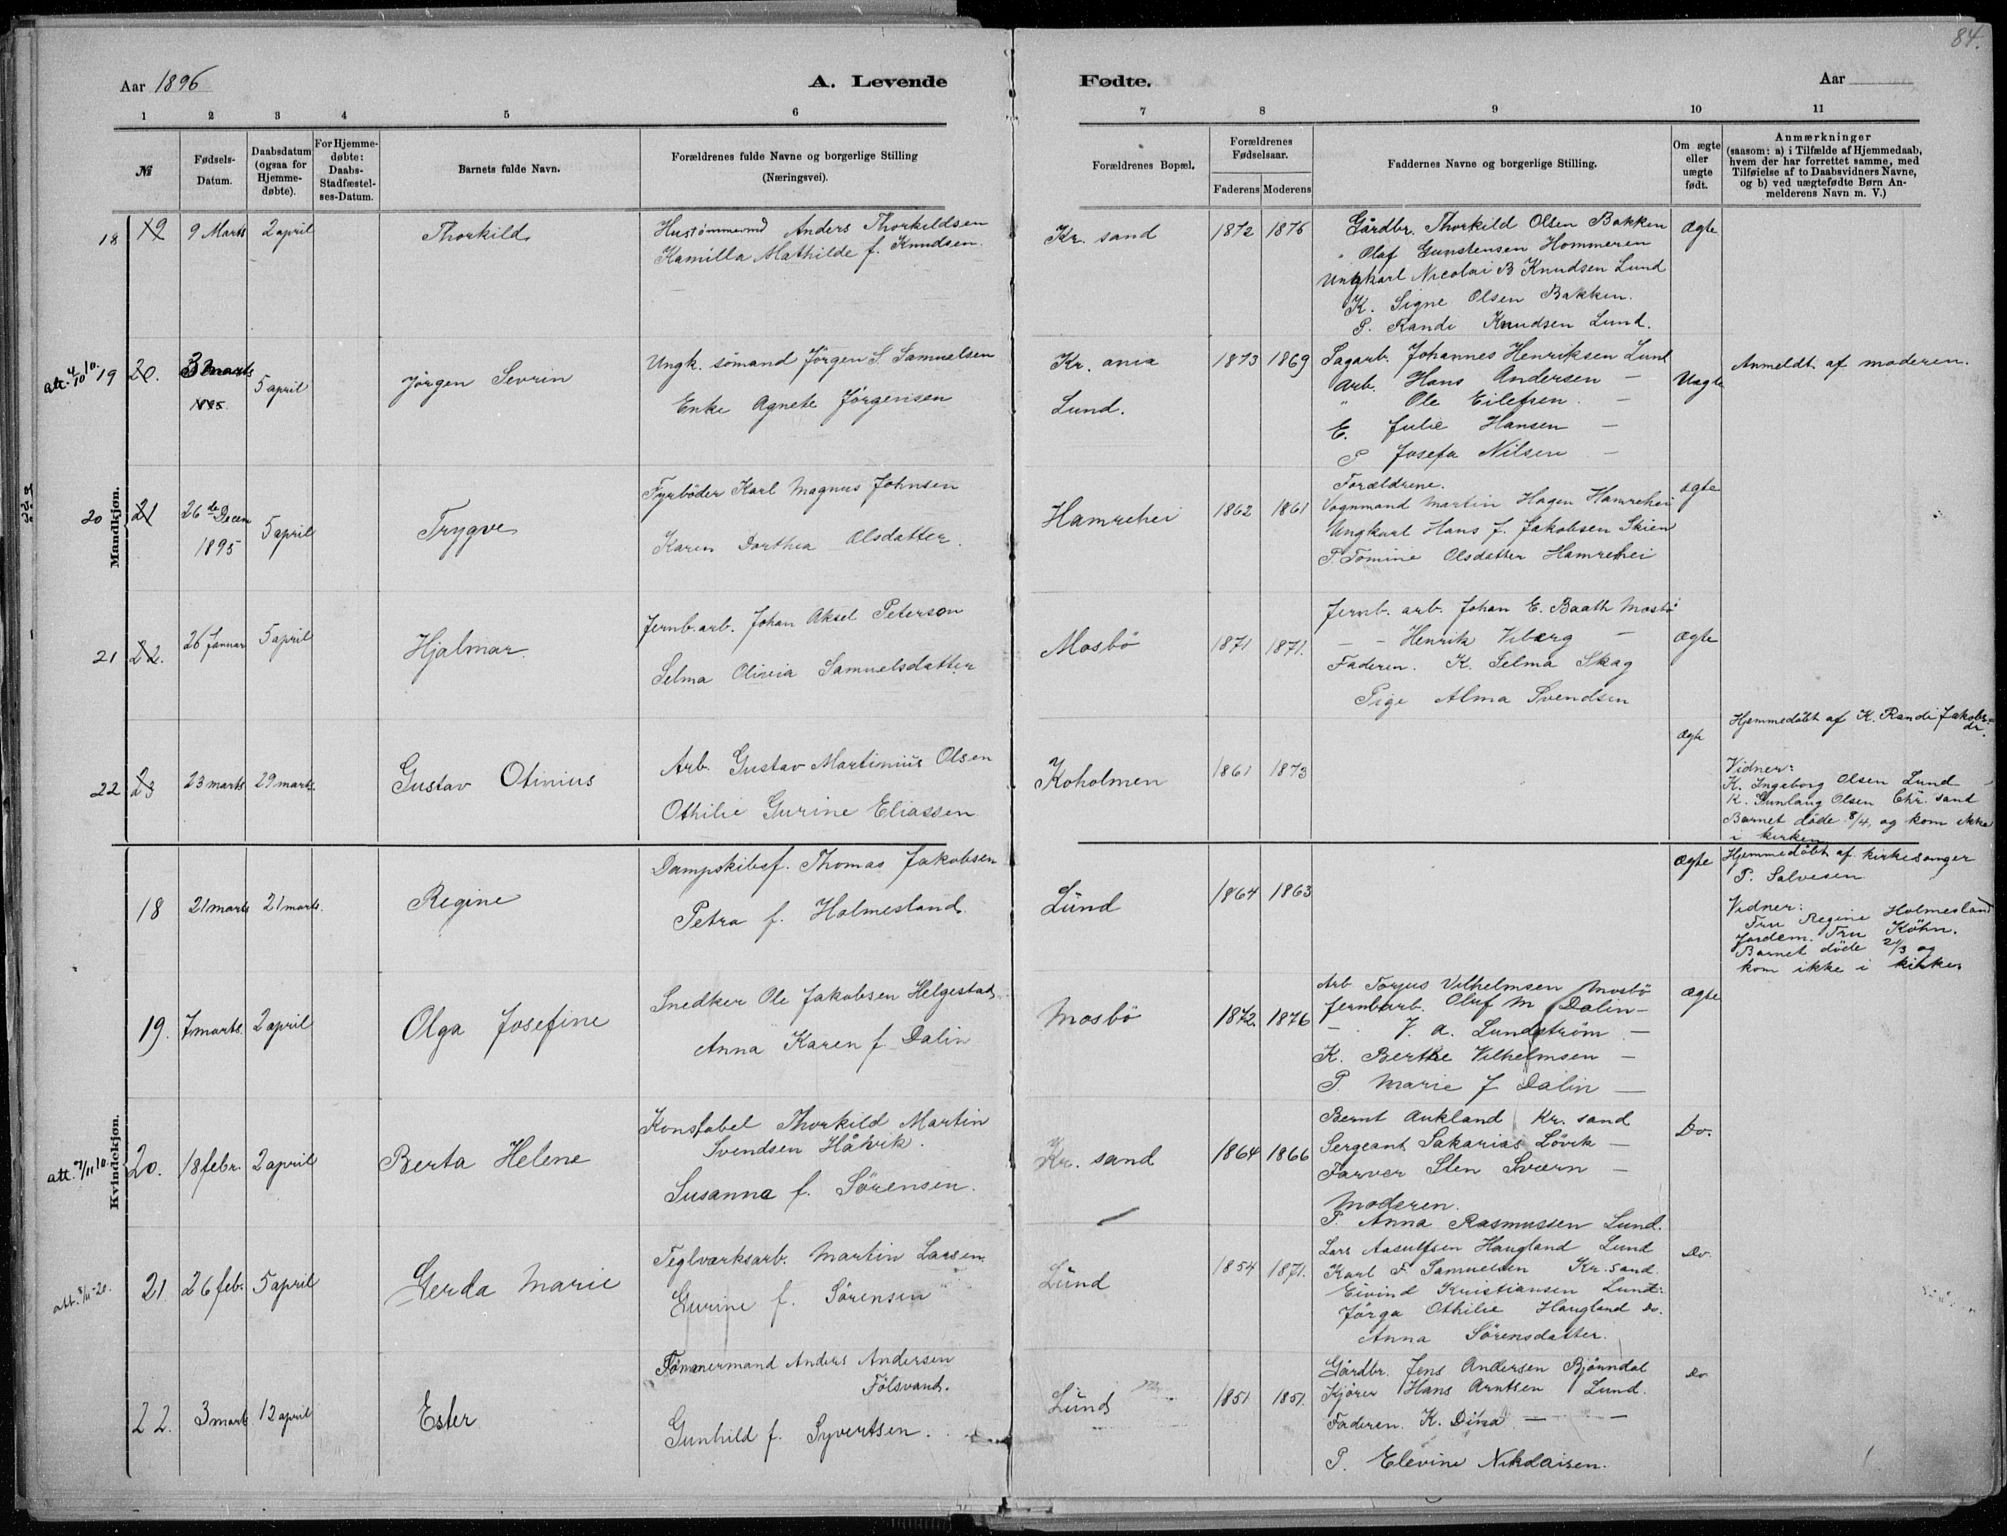 84.
Aar 1896
A. Levende
Fødte.
Aar
1 2 3 4 5 6 7 8 9 10 11
№
Fødsels-
Datum.
Daabsdatum
(ogsaa for
Hjemme-
døbte).
For Hjemme-
døbte:
Daabs-
Stadfæstel-
ses-Datum.
Barnets fulde Navn.
Forældrenes fulde Navne og borgerlige Stilling
(Næringsvei).
Forældrenes Bopæl.
Forældrenes
Fødselsaar.
Faderens Moderens
Faddernes Navne og borgerlige Stilling.
Om ægte
eller
uægte
født.
Anmærkninger
(saasom: a) i Tilfælde af Hjemmedaab,
hvem der har forrettet samme, med
Tilføielse af to Daabsvidners Navne,
og b) ved uægtefødte Børn An-
melderens Navn m. V.)
Mandkjøn.
18 19 9 Marts 2 april
Thorkild
Hustømmermd Anders Thorkildsen
Kamilla Mathilde f. Knudsen.
Kr. sand
1872 1876
Gårdbr. Thorkild Olsen Bakken
" Olaf Gunstensen Hommeren
Ungkarl Nicolai B Knudsen Lund
K. Signe Olsen Bakken.
P. Randi Knudsen Lund.
Ægte
att. 4/10 10. 19 20. 3 marts
1895
5 april
Jörgen Sevrin
Ungk. sömand Jörgen S. Samuelsen
Enke Agnete Jörgensen
Kr. ania
Lund.
1873 1869
Sagarb. Johannes Henriksen Lund
Arb. Hans Andersen —
" Ole Eilefsen —
E. Julie Hansen —
P Josefa Nilsen —
Uægte
Anmeldt af moderen.
20 21 26de Decem
1895
5 april
Trygve
Fyrböder Karl Magnus Johnsen
Karen Dorthea Olsdatter.
Hamrehei
1862 1861
Forældrene.
Vognmand Martin Hagen Hamrehei
Ungkarl Hans J. Jakobsen Skien
P. Tomine Olsdatter Hamrehei
ægte
21 22. 26 Januar 5 april
Hjalmar.
Jernb. arb. Johan Aksel Peterson
Selma Olivia Samuelsdatter
Mosbö
1871 1871.
Jernb. arb. Johan E. Baath Mosbö
— - Henrik Viberg —
Faderen. K. Selma Skag
Pige Alma Svendsen
Ægte
22 23 23 marts 29 marts.
Gustav Otinius
Arb. Gustav Martinius Olsen
Othilie Gurine Eliassen
Koholmen
1861 1873
Ægte
Hjemmedöbt af K. Randi Jakobs-
dr.
Vidner:
K. Ingeborg Olsen Lund —
K. Gunlaug Olsen Chr. sand
Barnet döde 8/4, og kom ikke
i kirken
Kvindekjøn.
18 21 marts 21 marts.
Regine
Dampskibsf. Thomas Jakobsen
Petra f. Holmesland.
Lund
1864 1863
Ægte
Hjemmedöbt af kirkesanger
P. Salvesen
Vidner:
Fru Regine Holmesland
Jordem. Fru Köhn.
Barnet döde 21/3 og
kom ikke i kirken
19. 7 marts. 2 april
Olga Josefine
Snedker Ole Jakobsen Helgestad
Anna Karen f. Dalin
Mosbö
1872. 1876
Arb Torjus Vilhelmsen Mosbö
Jernbarb. Oluf M Dalin —
— J. A. Lundström —
K. Berthe Vilhelmsen —
P. Marie J Dalin —
Ægte
att. 7/11 10. 20. 18 febr. 2 april
Berta Helene
Konstabel Thorkild Martin
Svendsen Håvik.
Susanna f. Sörensen.
Kr. sand
1864 1866
Bernt Aukland Kr. sand
Sergeant Sakarias Lövik —
Farver Sten Sværn —
Moderen.
P. Anna Rasmussen Lund.
Do.
att. 8/11-20. 21. 26 feb. 5 april
Gerda Marie
Teglværksarb. Martin Larsen
Gurine f. Sörensen
Lund
1854 1871.
Lars Aasulfsen Haugland Lund
Karl F Samuelsen Kr. sand.
Eivind Kristiansen Lund:
Jörga Othilie Haugland do.
Anna Sörensdatter.
Do.
22. 3 marts 12 april
Ester
Tömmermand Anders Andersen
Fölsvand.
Gunhild f. Syvertsen.
Lund
1851 1851.
Gårdbr. Jens Andersen Bjönndal
Kjörer Hans Arntsen Lund.
Faderen. K. Dina — —
P. Elevine Nikolaisen.
Do